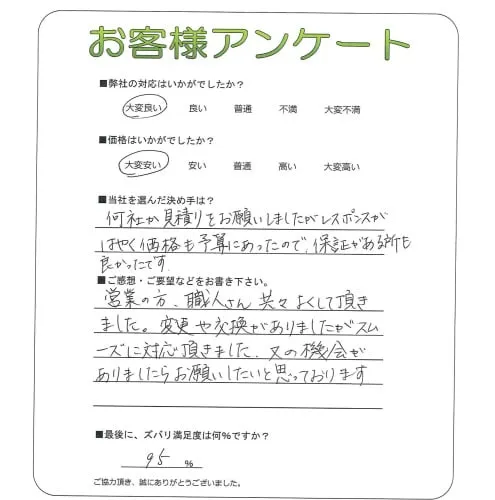 お客様アンケート
■弊社の対応はいかがでしたか?
大変良い 良い 普通 不満 大変不満
■価格はいかがでしたか?
大変安い 安い 普通 高い 大変高い
■当社を選んだ決め手は?
何社か見積りをお願いしましたがレスポンスが
はやく価格も予算にあったので、保証がある所も
良かったです。
■ご感想・ご要望などをお書き下さい。
営業の方、職人さん共々よくして頂き
ました。変更や交換がありましたがスム
ーズに対応頂きました、又の機会が
ありましたらお願いしたいと思っております
■最後に、ズバリ満足度は何%ですか?
95 %
ご協力頂き、誠にありがとうございました。